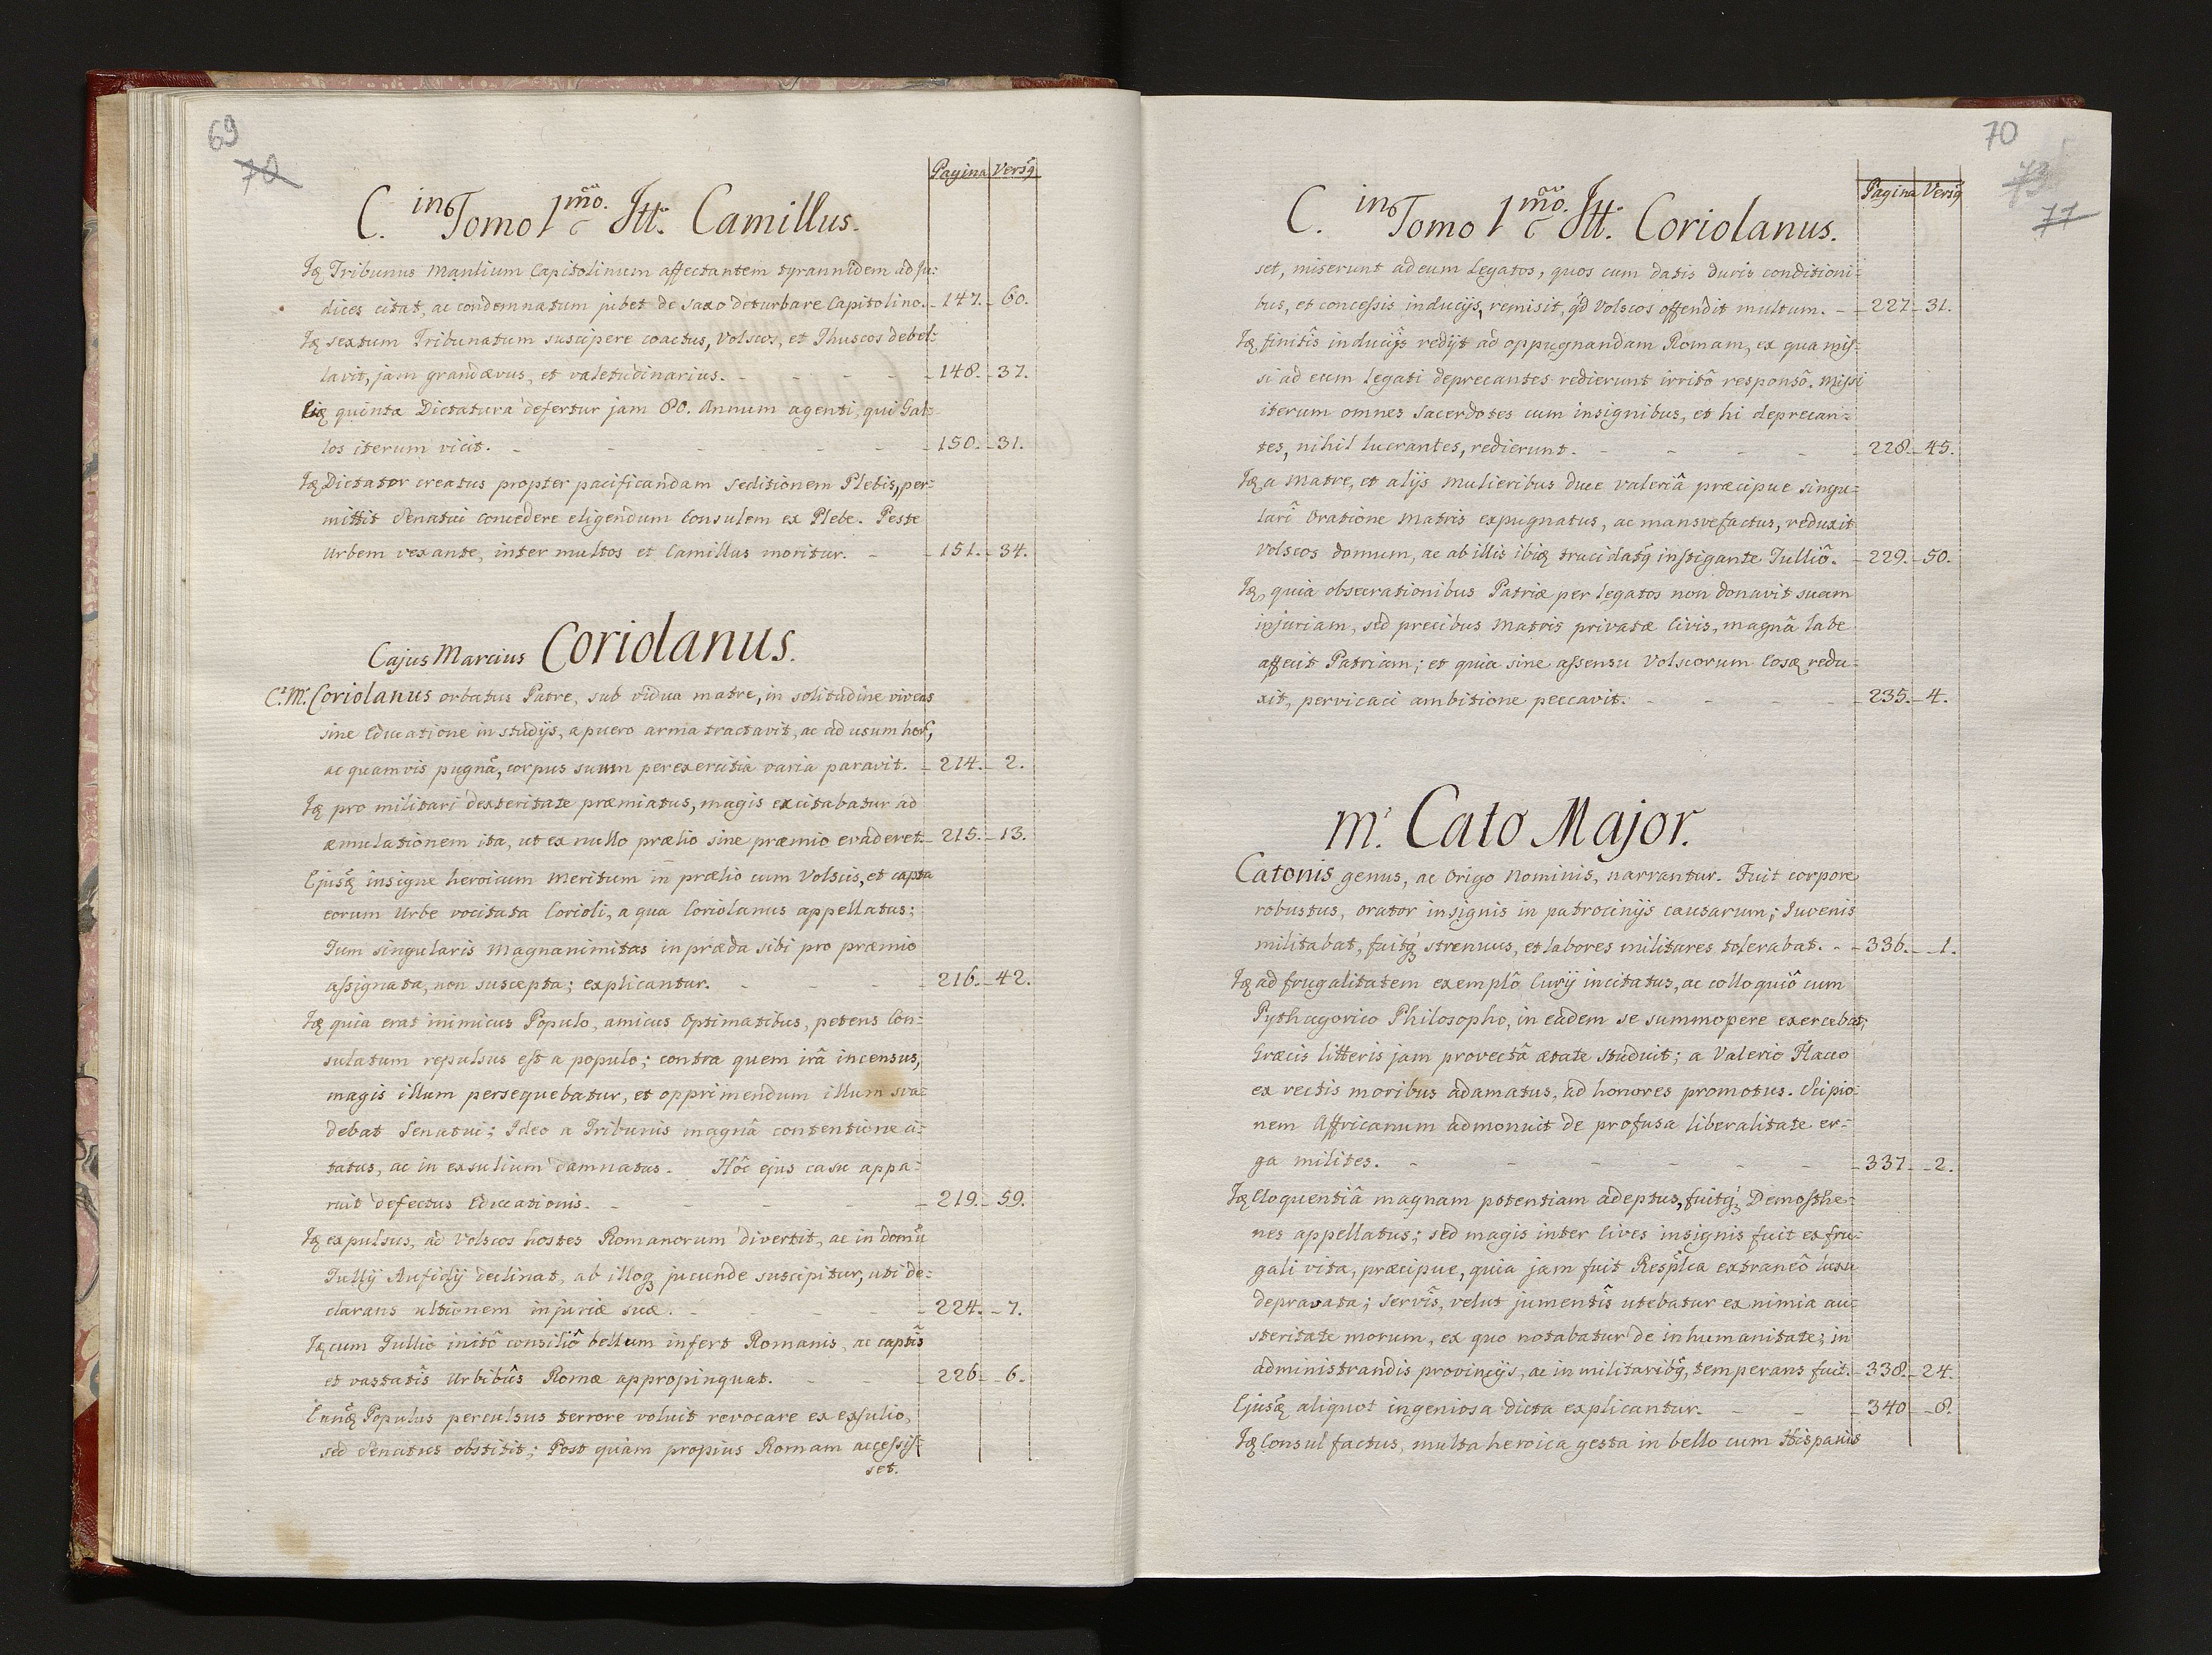 69
70
Pagina Versq
C. in Tomo 1mo. Itt. Camillus.
Iq Tribunus Manlium Capitolinum affectantem tyrannidem ad Ju:
dices citat, ac condemnatum jubet de saxo deturbare Capitolino. 147. 60.
Iq sextum Tribunatum suscipere coactus, Volscos, et Thuscos debel:
lavit, jam grandævus, et valetudinarius. 148. 37.
Eiq quinta Dictatura defertur jam 80. Annum agenti, qui Gal:
los iterum vicit. 150. 31.
Iq Dictator creatus propter pacificandam seditionem Plebis, per:
mittit Senatui concedere eligendum Consulem ex Plebe. Peste
Urbem vexante, inter multos et Camillus moritur. 151. 34.
Cajus Marcius Coriolanus.
C. M. Coriolanus orbatus Patre, sub vidua matre, in solitudine vivens
sine Educatione in studijs, a puero arma tractavit, ac ad usum hor,
ac quamvis pugnã, corpus suum per exercitia varia paravit. 214. 2.
Iq pro militari dexteritate præmiatus, magis excitabatur ad
æmulationem ita, ut ex nullo prælio sine præmio evaderet. 215. 13.
Ejusq insigne heroicum Meritum in prælio cum Volscis, et capta
eorum Urbe vocitata Corioli, a qua Coriolanus appellatus;
Tum singularis Magnanimitas in præda sibi pro præmio
assignata, non suscepta; explicantur. 216. 42.
Iq quia erat inimicus Populo, amicus Optimatibus, petens Con:
sulatum repulsus est a populo; contra quem irâ incensus,
magis illum persequebatur, et opprimendum illum sva:
debat Senatui; Ideo a Tribunis magnâ contentione ci:
tatus, ac in exsulium damnatus. Hôc ejus casu appa:
ruit defectus Educationis. 219. 59.
Iq expulsus, ad Volscos hostes Romanorum divertit, ac in domũ
Tullij Aufidij declinat, ab illoq jucunde suscipitur, uti de:
clarans ultionem injuriæ suæ. 224. 7.
Iq cum Tullio initô consiliô bellum infert Romanis, ac captîs
et vastatîs Urbibûs Romæ appropinquat. 226. 6.
Eunq Populus perculsus terrore voluit revocare ex exsulio,
sed Senatus obstitit; Post quam propius Romam accessis:
set.
70
73
77
Pagina Versq
C. in Tomo 1mo. Itt. Coriolanus.
set, miserunt ad eum Legatos, quos cum datis duris conditioni:
bus, et concessis inducijs, remisit, qd Volscos offendit multum. 227. 31.
Iq finitîs inducijs redijt ad oppugnandam Romam, ex qua mis:
si ad eum Legati deprecantes redierunt irritô responsô. Missi
iterum omnes Sacerdotes cum insignibus, et hi deprecan:
tes, nihil lucrantes, redierunt. 228. 45.
Iq a Matre, et alijs Mulieribus duce Valeriâ præcipue singu:
larî Oratione Matris expugnatus, ac mansvefactus, reduxit
Volscos domum, ac ab illis ibiq trucidatq instigante Tulliô. 229. 50.
Iq, quia obsecrationibus Patriæ per Legatos non donavit suam
injuriam, sed precibus Matris privatæ Civis, magnâ labe
affecit Patriam; et quia sine assensu Volscorum Eosq redu:
xit, pervicaci ambitione peccavit. 235. 4.
M. Cato Major.
Catonis genus, ac Origo Nominis, narrantur. Fuit corpore
robustus, Orator insignis in patrocinijs causarum; Iuvenis
militabat, fuitq strenuus, et labores militares tolerabat. 336. 1.
Iq ad frugalitatem exemplô Curij incitatus, ac colloquiô cum
Pythagorico Philosopho, in eadem se summopere exercebat;
Græcis litteris jam provectâ ætate studuit; a Valerio Flacco
ex rectis moribus adamatus, ad honores promotus. Scipio:
nem Affricanum admonuit de profusa liberalitate er:
ga milites. 337. 2.
Iq Eloquentiâ magnam potentiam adeptus, fuitq Demosthe:
nes appellatus; sed magis inter Cives insignis fuit ex fru:
gali vita, præcipue, quia jam fuit Resplca extraneô luxu
depravata; servîs, velut jumentîs utebatur ex nimia au:
steritate morum, ex quo notabatur de inhumanitate; in
administrandis provincijs, ac in militaribq, temperans fuit. 338. 24.
Ejusq aliquot ingeniosa dicta explicantur. 340. 8.
Iq Consul factus, multa heroica gesta in bello cum Hispanis